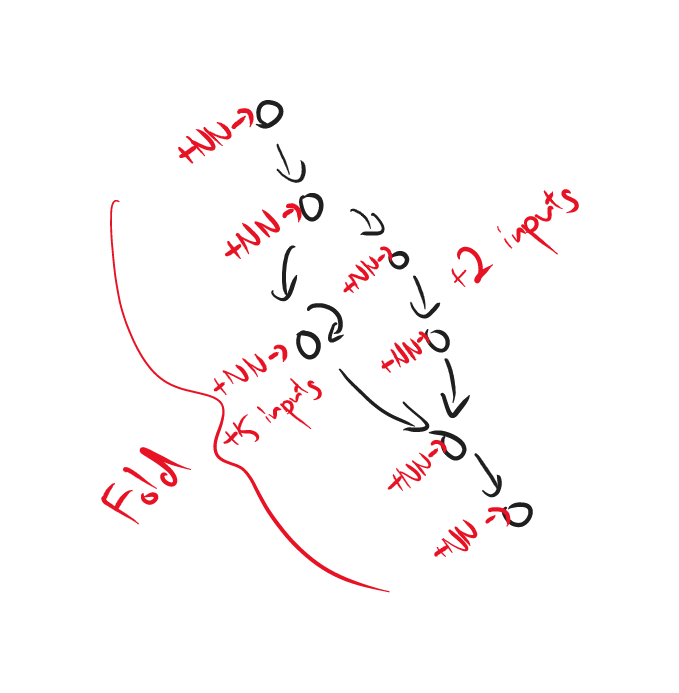 +NN→
+NN→
+NN→
+2 inputs
+NN→
+NN→
+5 inputs
+NN→
+NN→
Fold